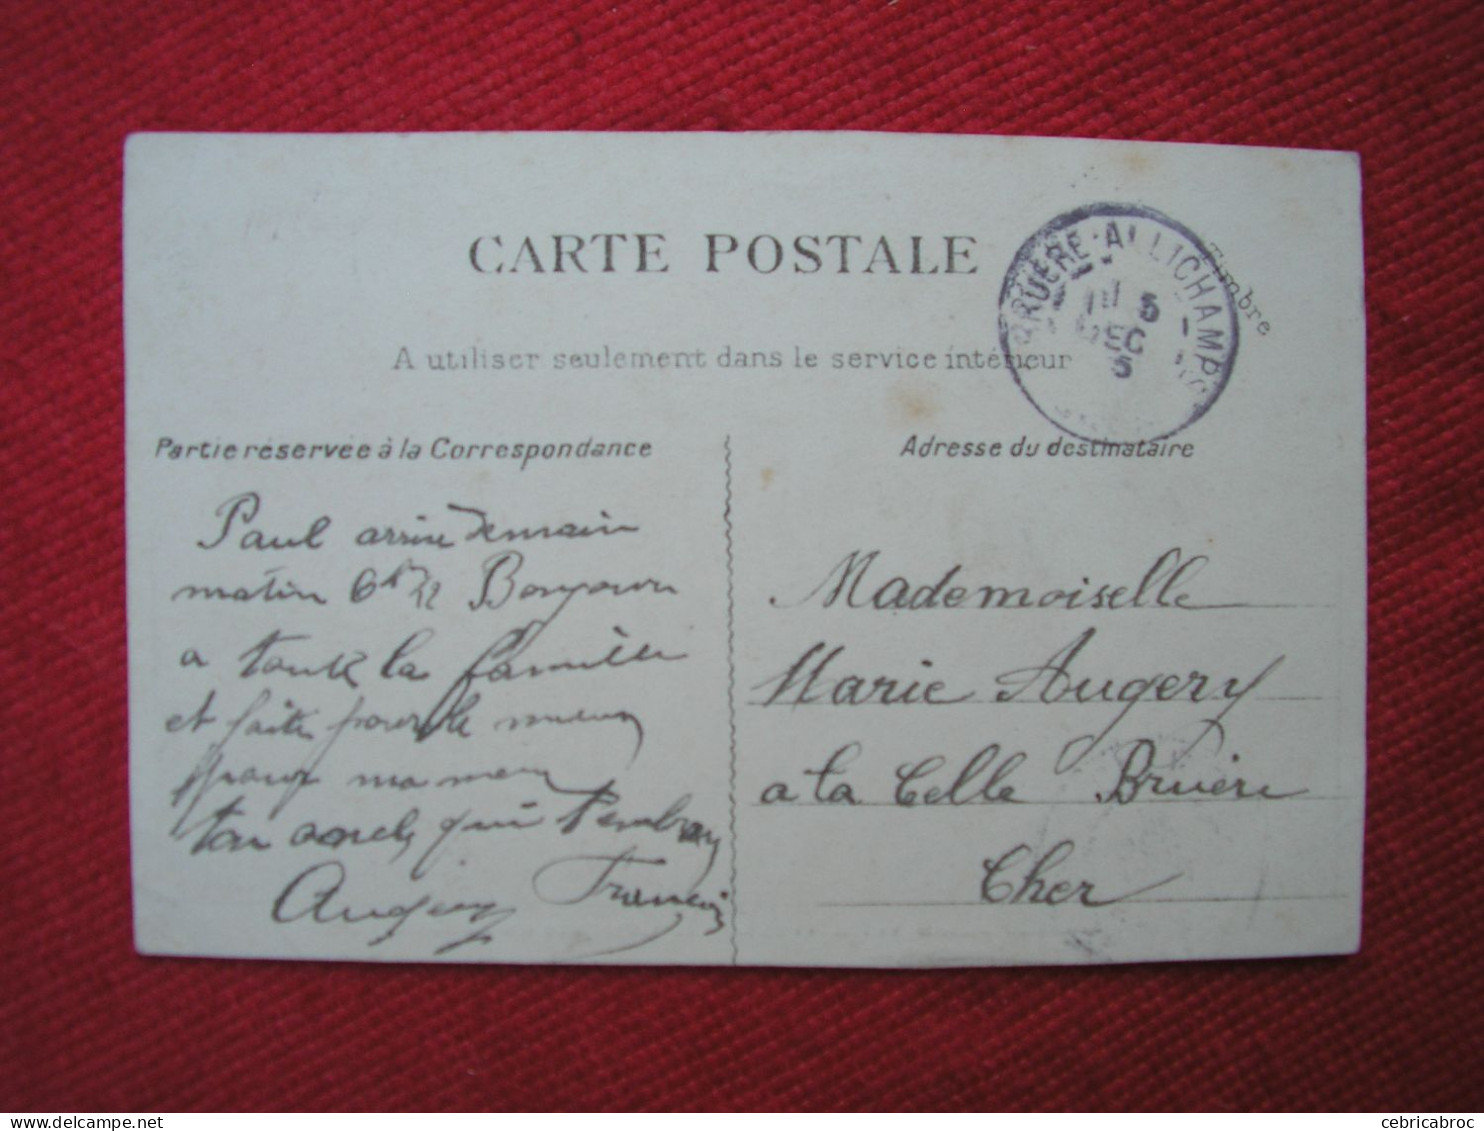 CARTE POSTALE
A utiliser seulement dans le service intérieur
BRUÈRE-ALLICHAMPS
5
DEC
5
Timbre
Partie réservée à la Correspondance
Adresse du destinataire
Paul arrive demain
matin 6h 1/2 Bonjour
a toute la famille
et faite pour le mieux
pour
ton oncle qui t'embrasse
Augery Francis
Mademoiselle
Marie Augery
a la Celle Bruère
Cher
cebricabroc